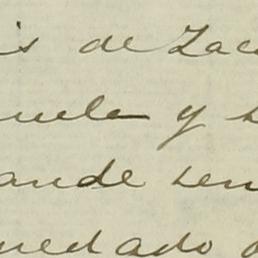 is de Zac
uela y s
ande sen
uedado o